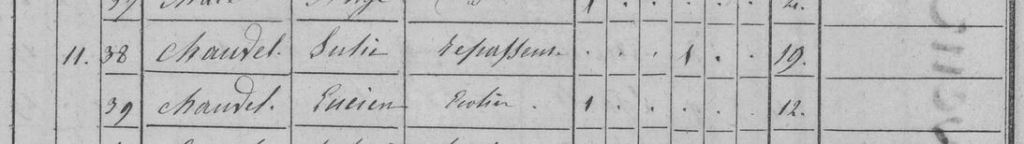 11. 38 Chaudel. Julie Repasseuse . . . 1 . . 19.
39 Chaudel. Lucien Ecolier . 1 . . . . . 12.